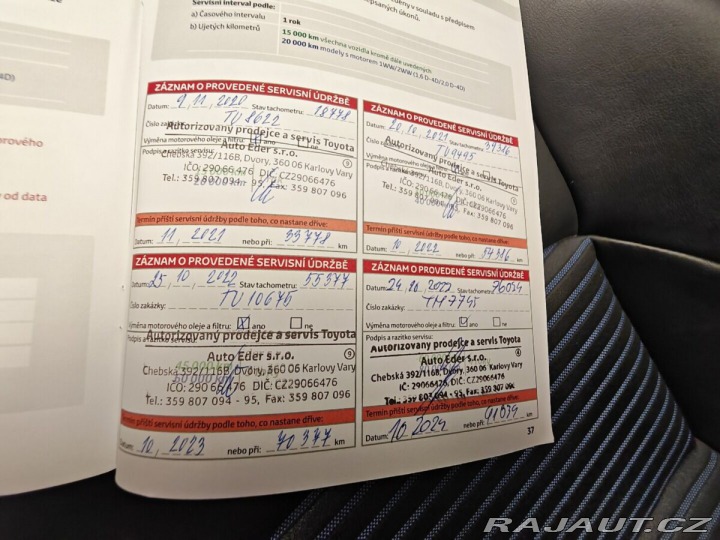 Servisní interval podle:
a) Časového intervalu
1 rok
b) Ujetých kilometrů
15 000 km všechna vozidla kromě dále uvedených
20 000 km modely s motorem 1WW/2WW (1,6 D-4D/2,0 D-4D)
ZÁZNAM O PROVEDENÉ SERVISNÍ ÚDRŽBĚ
Datum: 9, 11, 2020 Stav tachometru: 18778
Číslo zakázky: TU 8622
Autorizovaný prodejce a servis Toyota
Výměna motorového oleje a filtru:
Podpis a razítko servisu:
Auto Eder s.r.o.
Chebská 392/116B, Dvory, 360 06 Karlovy Vary
IČO: 290 66 476 DIČ: CZ29066476
Tel.: 359 807 094 - 95, Fax: 359 807 096
Termín příští servisní údržby podle toho, co nastane dříve:
Datum: 11, 2021 nebo při: 33778 km
ZÁZNAM O PROVEDENÉ SERVISNÍ ÚDRŽBĚ
Datum: 20, 10, 2021 Stav tachometru: 39316
Číslo zakázky: TU 9495
Autorizovaný prodejce a servis Toyota
Výměna motorového oleje a filtru:
Podpis a razítko servisu:
Auto Eder s.r.o.
Chebská 392/116B, Dvory, 360 06 Karlovy Vary
IČO: 290 66 476 DIČ: CZ29066476
Tel.: 359 807 094 - 95, Fax: 359 807 096
Termín příští servisní údržby podle toho, co nastane dříve:
Datum: 10, 2022 nebo při: 54316 km
ZÁZNAM O PROVEDENÉ SERVISNÍ ÚDRŽBĚ
Datum: 25, 10, 2022 Stav tachometru: 55377
Číslo zakázky: TU 10675
Výměna motorového oleje a filtru: X ano ne
Podpis a razítko servisu:
Autorizovaný prodejce a servis Toyota
Auto Eder s.r.o.
Chebská 392/116B, Dvory, 360 06 Karlovy Vary
IČO: 290 66 476 DIČ: CZ29066476
Tel.: 359 807 094 - 95, Fax: 359 807 096
Termín příští servisní údržby podle toho, co nastane dříve:
Datum: 10, 2023 nebo při: 70377 km
ZÁZNAM O PROVEDENÉ SERVISNÍ ÚDRŽBĚ
Datum: 24, 10, 2023 Stav tachometru: 76034
Číslo zakázky: TH 7745
Výměna motorového oleje a filtru: ano ne
Podpis a razítko servisu:
Autorizovaný prodejce a servis Toyota
Auto Eder s.r.o.
Chebská 392/116B, Dvory, 360 06 Karlovy Vary
IČ: 29066476, DIČ: CZ29066476
Tel.: 359 807 094 - 95, Fax: 359 807 096
Termín příští servisní údržby podle toho, co nastane dříve:
Datum: 10 2024 nebo při: 91034 km
37
RAJAUT.CZ